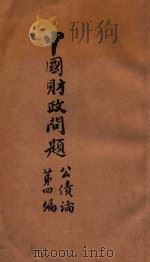 研狗
中國財政問題
公債論
第四編
mtoou.info